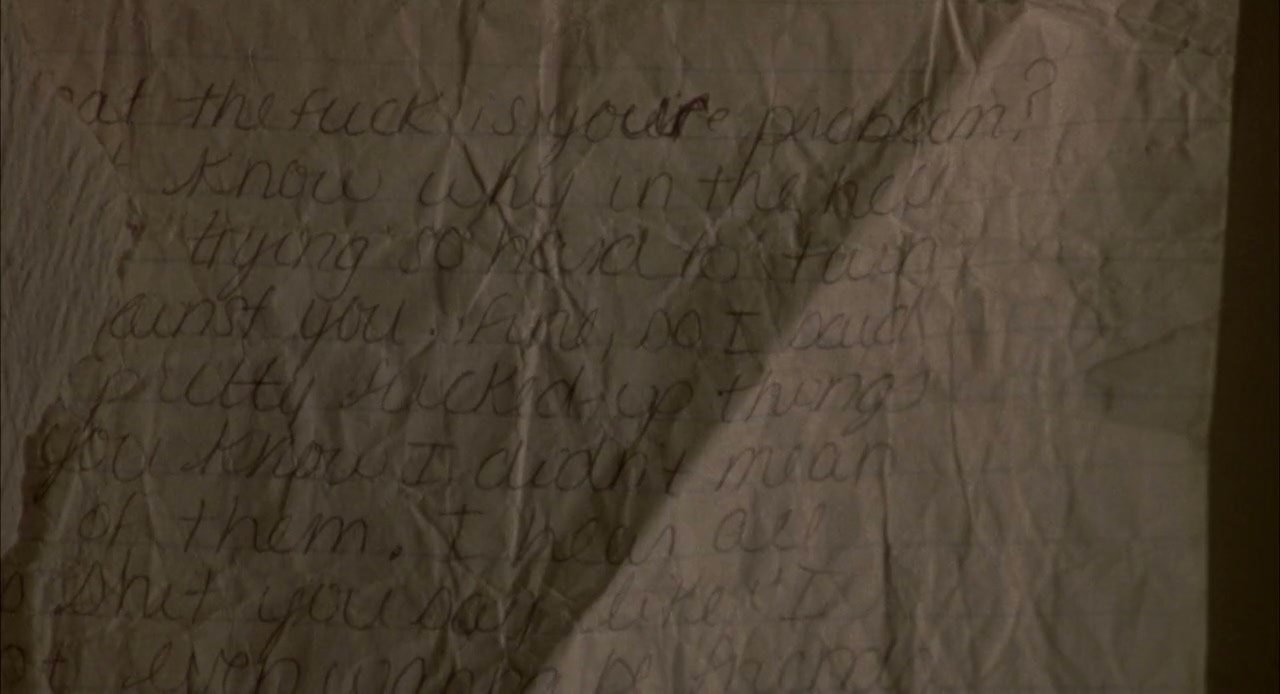 at the fuck is you're problem?
know why in the hell
trying so hard to turn
ainst you. fine, so I said
pretty fucked up things
you know I didn't mean
of them. I hear all
shit you say like "I
even wanna be friends